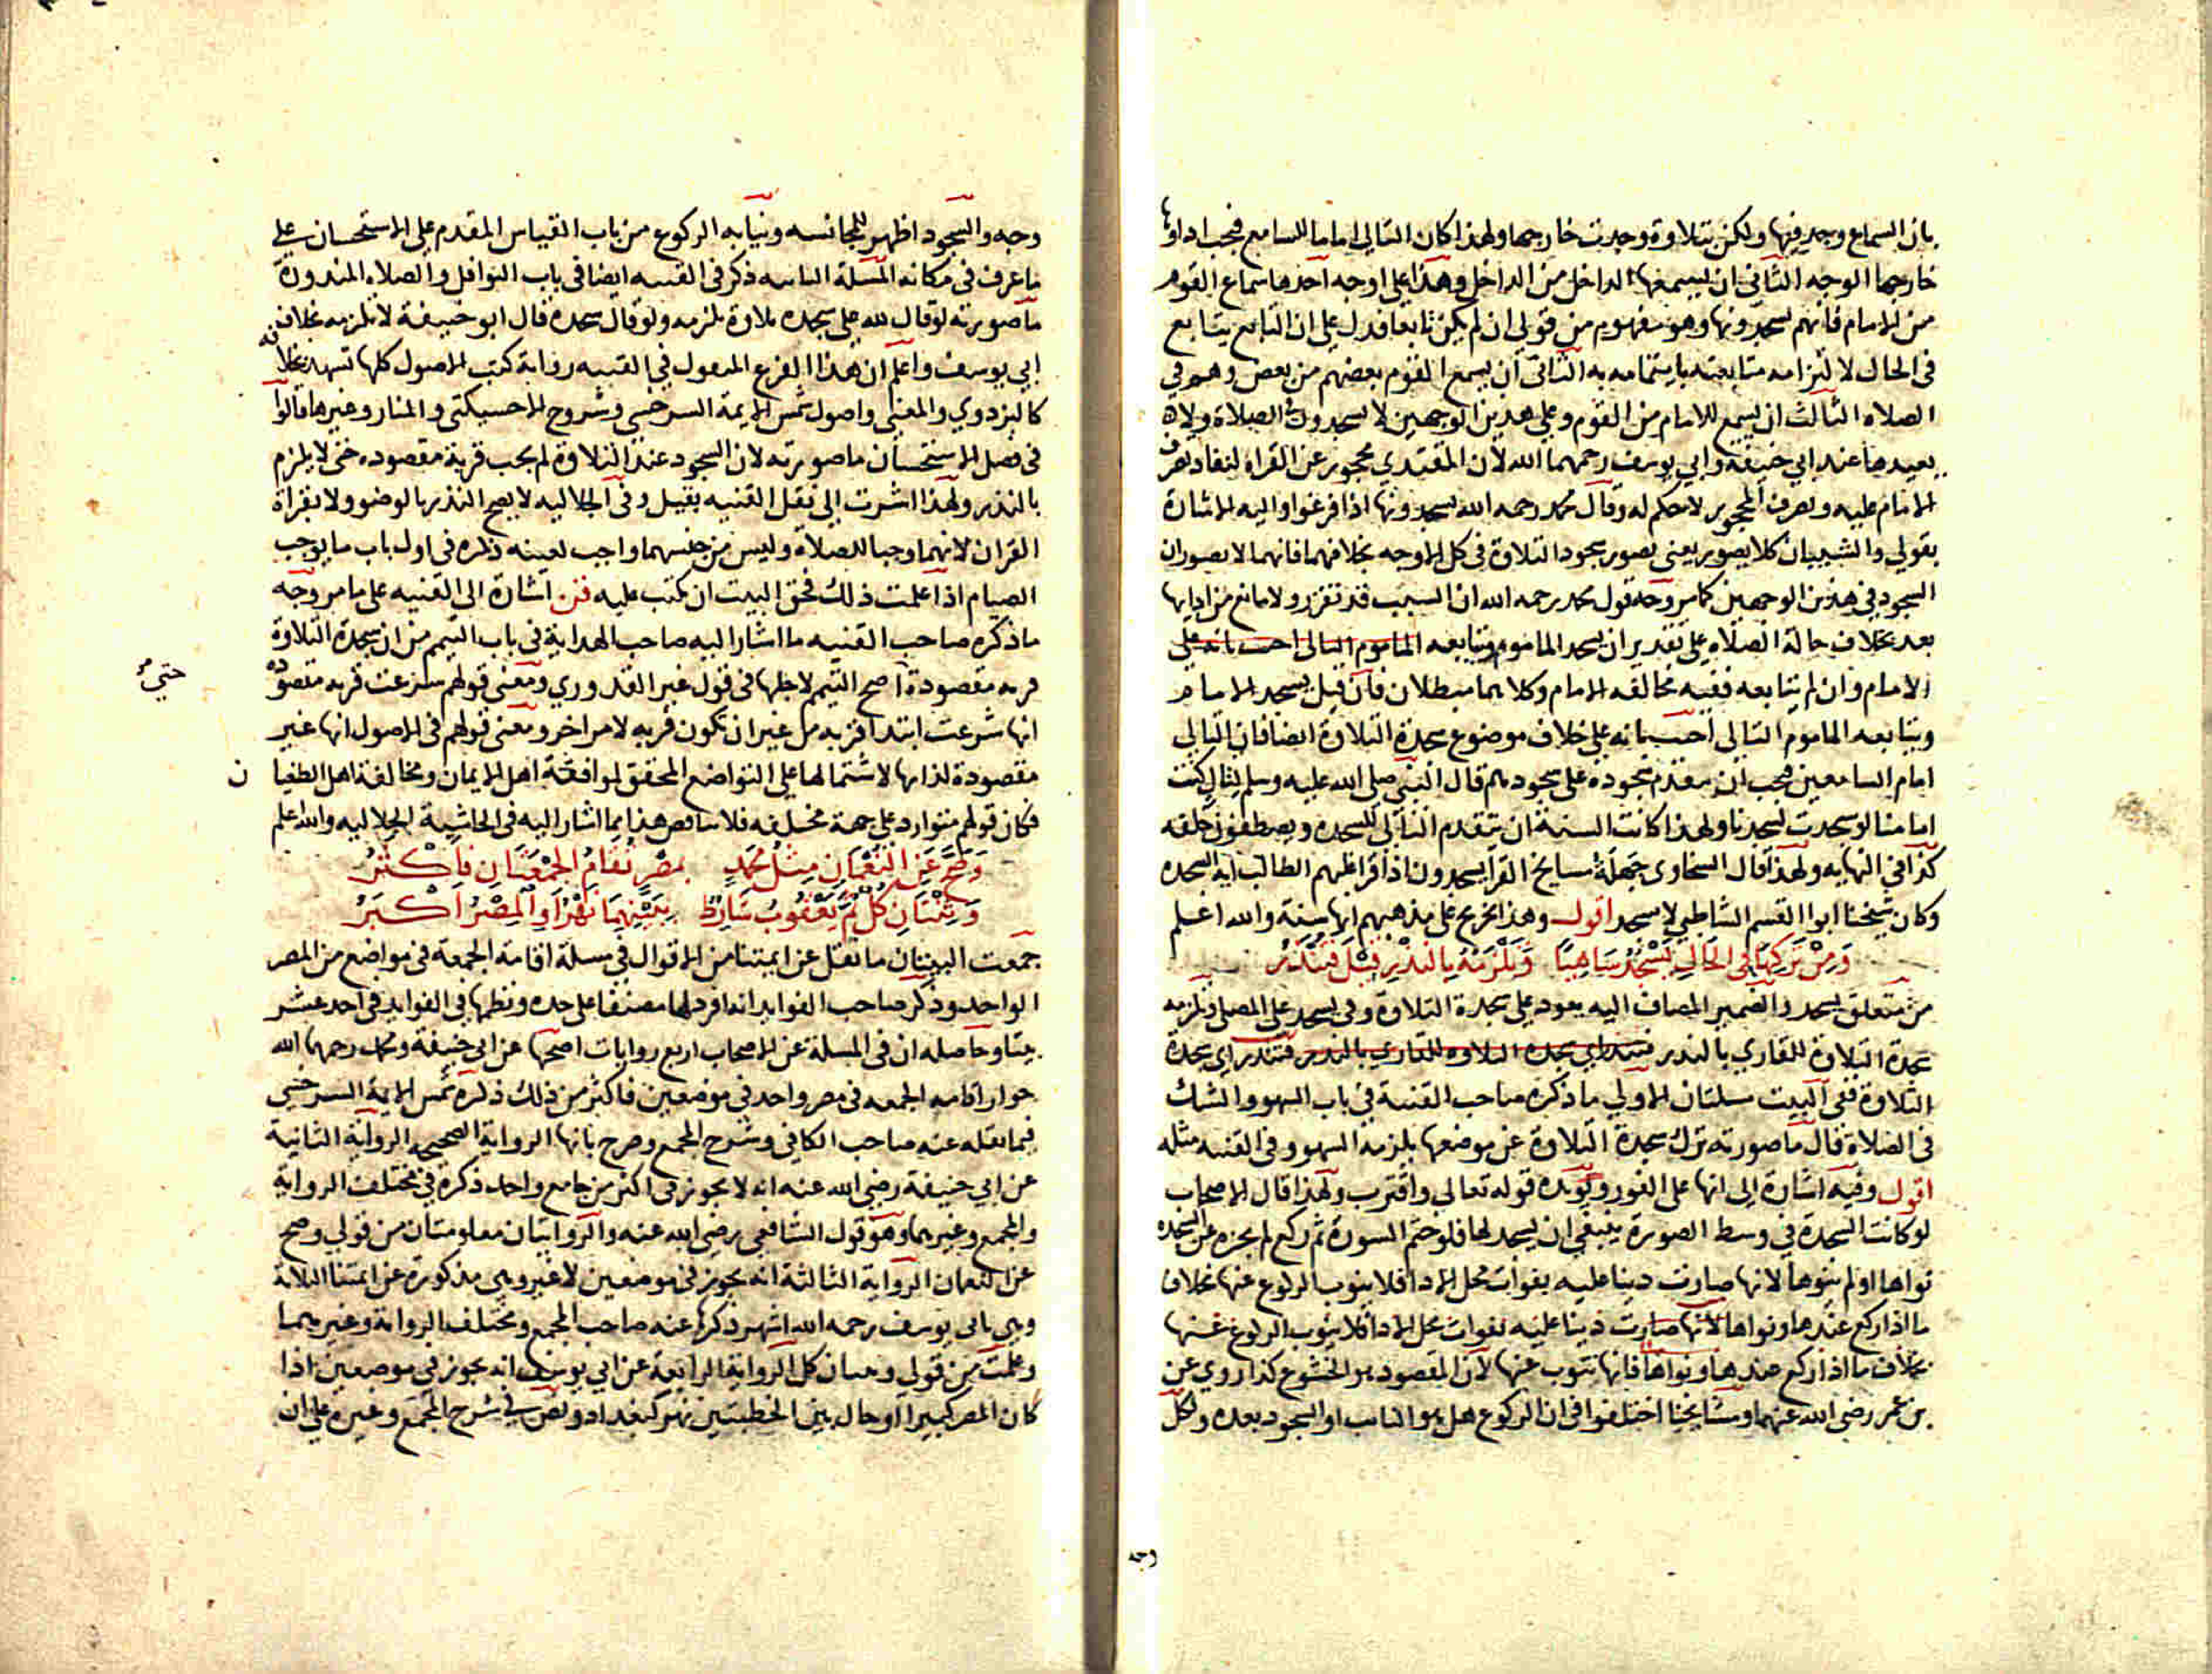 بان السماع وجد فيها ولكن بتلاوة وجدت خارجها ولهذا كان التالي اماما للسامع فيجب اداوها
خارجها الوجه الثاني ان يسمعها الداخل من الداخل وهذا على اوجه احدها سماع القوم
من الامام فانهم يسجدونها وهو مفهوم من قولي ان لم يكن تابعا فدل على ان التابع يتابع
في الحال لالتزامه متابعته بايتمامه به الثاني ان يسمع القوم بعضهم من بعض وهم في
الصلاه الثالث ان يسمع الامام من القوم وعلى هدين الوجهين لا يسجدون في الصلاة ولا
بعدها عند ابي حنيفة وابي يوسف رحمهما الله لان المقتدي محجور عن القراه لنفاد تصرف
الامام عليه وتصرف المحجور لا حكم له وقال محمد رحمه الله يسجدونها اذا فرغوا واليه الاشارة
بقولي والشيبان كلا يصور يعني يصور سجود التلاوة في كل الاوجه بخلافهما فانهما لا يصوران
السجود في هذين الوجهين كما مر وجه قول محمد رحمه الله ان السبب قد تقرر ولا مانع من ادايها
بعد بخلاف حالة الصلاه على تقدير ان يسجد الماموم ويتابعه الماموم التالى اجيب بانه على
الامام وان لم يتابعه ففيه مخالفه الامام وكلاهما مبطلان فان قيل يسجد الامام
ويتابعه الماموم التالى اجيب بانه على خلاف موضوع سجدة التلاوة ايضا فان التالي
امام السامعين فيجب ان يتقدم سجوده على سجودهم قال النبي صلى الله عليه وسلم لتال كنت
امامنا لو سجدت لسجدنا ولهذا كانت السنة ان يتقدم التالي للسجده ويصطفون خلفه
كذا في النهايه ولهذا قال السخاوى جهلة مشايخ القرا يسجدون اذا قرا عليهم الطالب اية السجده
وكان شيخنا ابو القسم الشاطبي لا يسجد اقول وهذا يخرج على مذهبهم انها سنة والله اعلم
وَمِنْ تَرْكِهَا فِي الحَالِ يَسْجُدُ سَاهِيًا وَيَلْزَمُهُ بِالنَّذْرِ قِيلَ فَتُنْذَرُ
من متعلق بيسجد والضمير المضاف اليه يعود على سجدة التلاوة وفى يسجد على المصلى ويلزمه
سجدة التلاوة للقاري بالنذر فتنذر اي سجدة التلاوه للقاري بالنذر فتنذر اي سجدة
التلاوة ففي البيت مسلتان الاولي ما ذكره صاحب القنية في باب السهو والشك
في الصلاة قال ما صورته ترك سجدة التلاوة عن موضعها يلزمه السهو وفى القنيه مثله
اقول وفيه اشارة الى انها على الفور ويويده قوله تعالى واقترب ولهذا قال الاصحاب
لو كانت السجدة في وسط الصورة ينبغي ان يسجد لها فلو ختم السورة ثم ركع لم يجزه عن السجده
نواها او لم ينوها لانها صارت دينا عليه بفوات محل الادا فلا ينوب الركوع عنها بخلاف
ما اذا ركع عندها ونواها لانها صارت دينا عليه لفوات محل الادا فلا ينوب الركوع عنها
بخلاف ما اذا ركع عندها ونواها فانها تنوب عنها لان المقصود هو الخشوع كذا روي عن
بن عمر رضي الله عنهما ومشايخنا اختلفوا في ان الركوع هل هو النايب او السجود بعده ولكل
وجه
وجه والسجود اظهر للمجانسه ونيابه الركوع من باب القياس المقدم على الاستحسان على
ما عرف في مكانه المسلة الثانيه ذكر في القنيه ايضا في باب النوافل والصلاه المنذورة
ما صورته لو قال لله على سجده تلاوة يلزمه ولو قال سجده قال ابو حنيفة لا يلزمه بخلاف
ابي يوسف واعلم ان هذا الفرع المنقول في القنيه رواية كتب الاصول كلها تشهد بخلافه
كالبزدوي والمغني واصول شمس الايمة السرخسي وشروح الاخسيكتى والمنار وغيرها قالوا
في فصل الاستحسان ما صورته لان السجود عند التلاوة لم يجب قربة مقصوده حتى لا يلزم
بالنذر ولهذا اشرت الى نقل القنيه بقيل وفى الجلاليه لا يصح النذر بالوضو ولا بقراة
القران لانهما وجبا للصلاة وليس من جنسهما واجب لعينه ذكره في اول باب ما يوجب
الصيام اذا علمت ذلك فحق البيت ان يكتب عليه فن اشارة الى القنيه على ما مر وجه
ما ذكره صاحب القنيه ما اشار اليه صاحب الهداية في باب التيمم من ان سجدة التلاوة
قربه مقصودة اصح التيمم لاجلها في قول غير القدوري ومعنى قولهم شرعت قربه مقصوده
حتى
انها شرعت ابتدا قربه من غير ان تكون قربه لامر اخر ومعنى قولهم في الاصول انها غير
مقصودة لذاتها لاشتمالها على التواضع المحقق لموافقة اهل الايمان ومخالفة اهل الطغيان
فكان قولهم متوارد على جهة مختلفه فلا تناقض هذا مما اشار اليه في الحاشية الجلاليه والله اعلم
وَصَحَّ عَنِ النُّعْمَانِ مِثْلُ مُحَمَّدٍ بِمِصْرٍ تُقَامُ الجُمْعَتَانِ فَأَكْثَرُ
وَثِنْتَانِ كُلٌّ ثُمَّ يَعْقُوبُ شَارِطٌ بِبَيْنِهِمَا نَهْرًا أَوِ المِصْرُ أَكْبَرُ
جمعت البيتان ما نقل عن ايمتنا من الاقوال في مسلة اقامة الجمعة في مواضع من المصر
الواحد وذكر صاحب الفوايد انه افرد لها مصنفا على حده ونظمها في الفوايد في احد عشر
بيتا وحاصله ان في المسلة عن الاصحاب اربع روايات اصحها عن ابى حنيفة ومحمد رحمهما الله
جواز اقامه الجمعه في مصر واحد في موضعين فاكثر من ذلك ذكره شمس الايمة السرخسي
فيما نقله عنه صاحب الكافي وشرح المجمع وصرح بانها الرواية الصحيحه الرواية الثانية
عن ابي حنيفة رضي الله عنه انه لا يجوز فى اكثر من جامع واحد ذكره في مختلف الرواية
والمجمع وغيرهما وهو قول الشافعي رضي الله عنه والروايتان معلومتان من قولي وصح
عن النعمان الرواية الثالثة انه يجوز في موضعين لا غير وهى مذكورة عن ايمتنا الثلاثة
وهى بابى يوسف رحمه الله اشهر ذكرها عنه صاحب المجمع ومختلف الرواية وغيرهما
وعلمت من قولي وثنتان كل الرواية الرابعة عن ابي يوسف انه يجوز في موضعين اذا
كان المصر كبيرا او حال بين الخطبتين نهر كبغداد ونص في شرح المجمع وغيره على ان